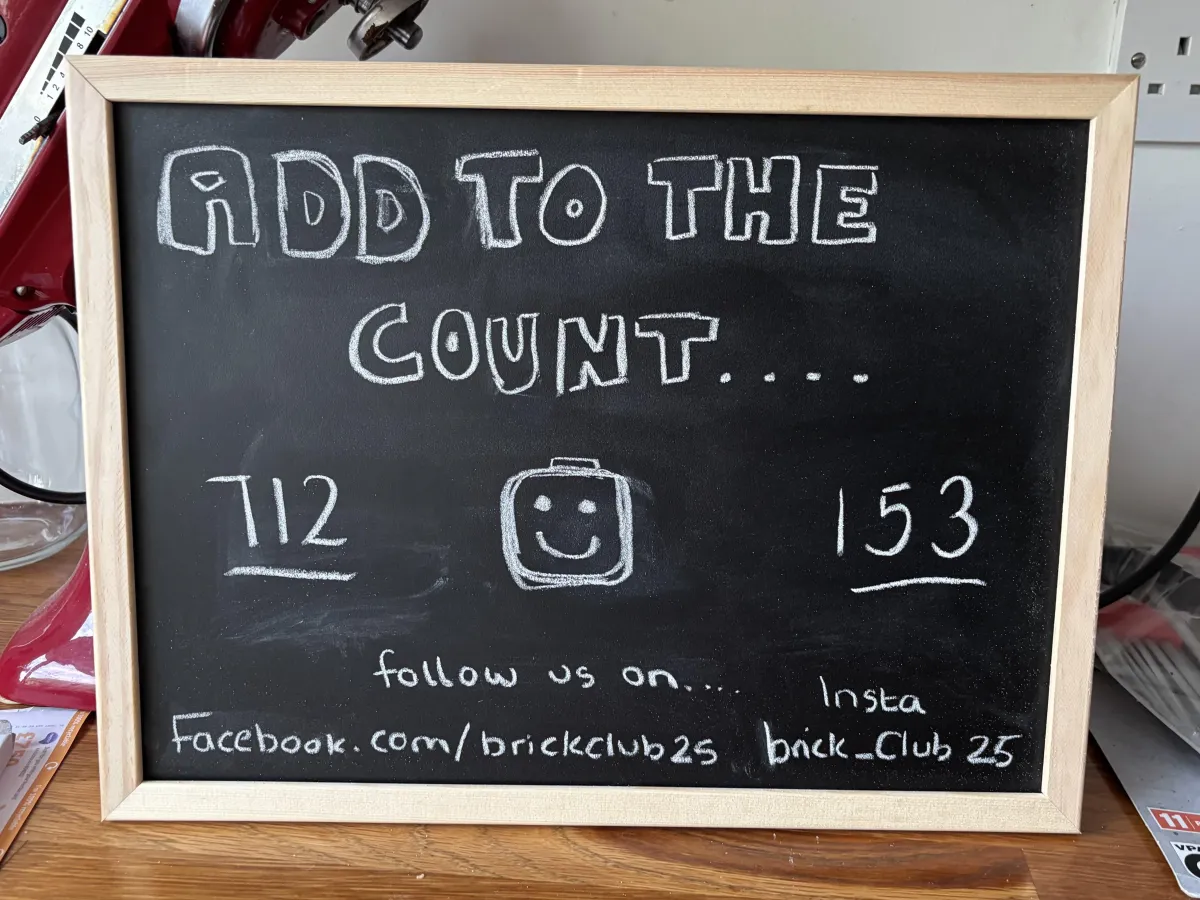 ADD TO THE
COUNT....
712 153
follow us on....
Insta
Facebook.com/brickclub25 brick_Club 25
10
8
4
2
1
0
11